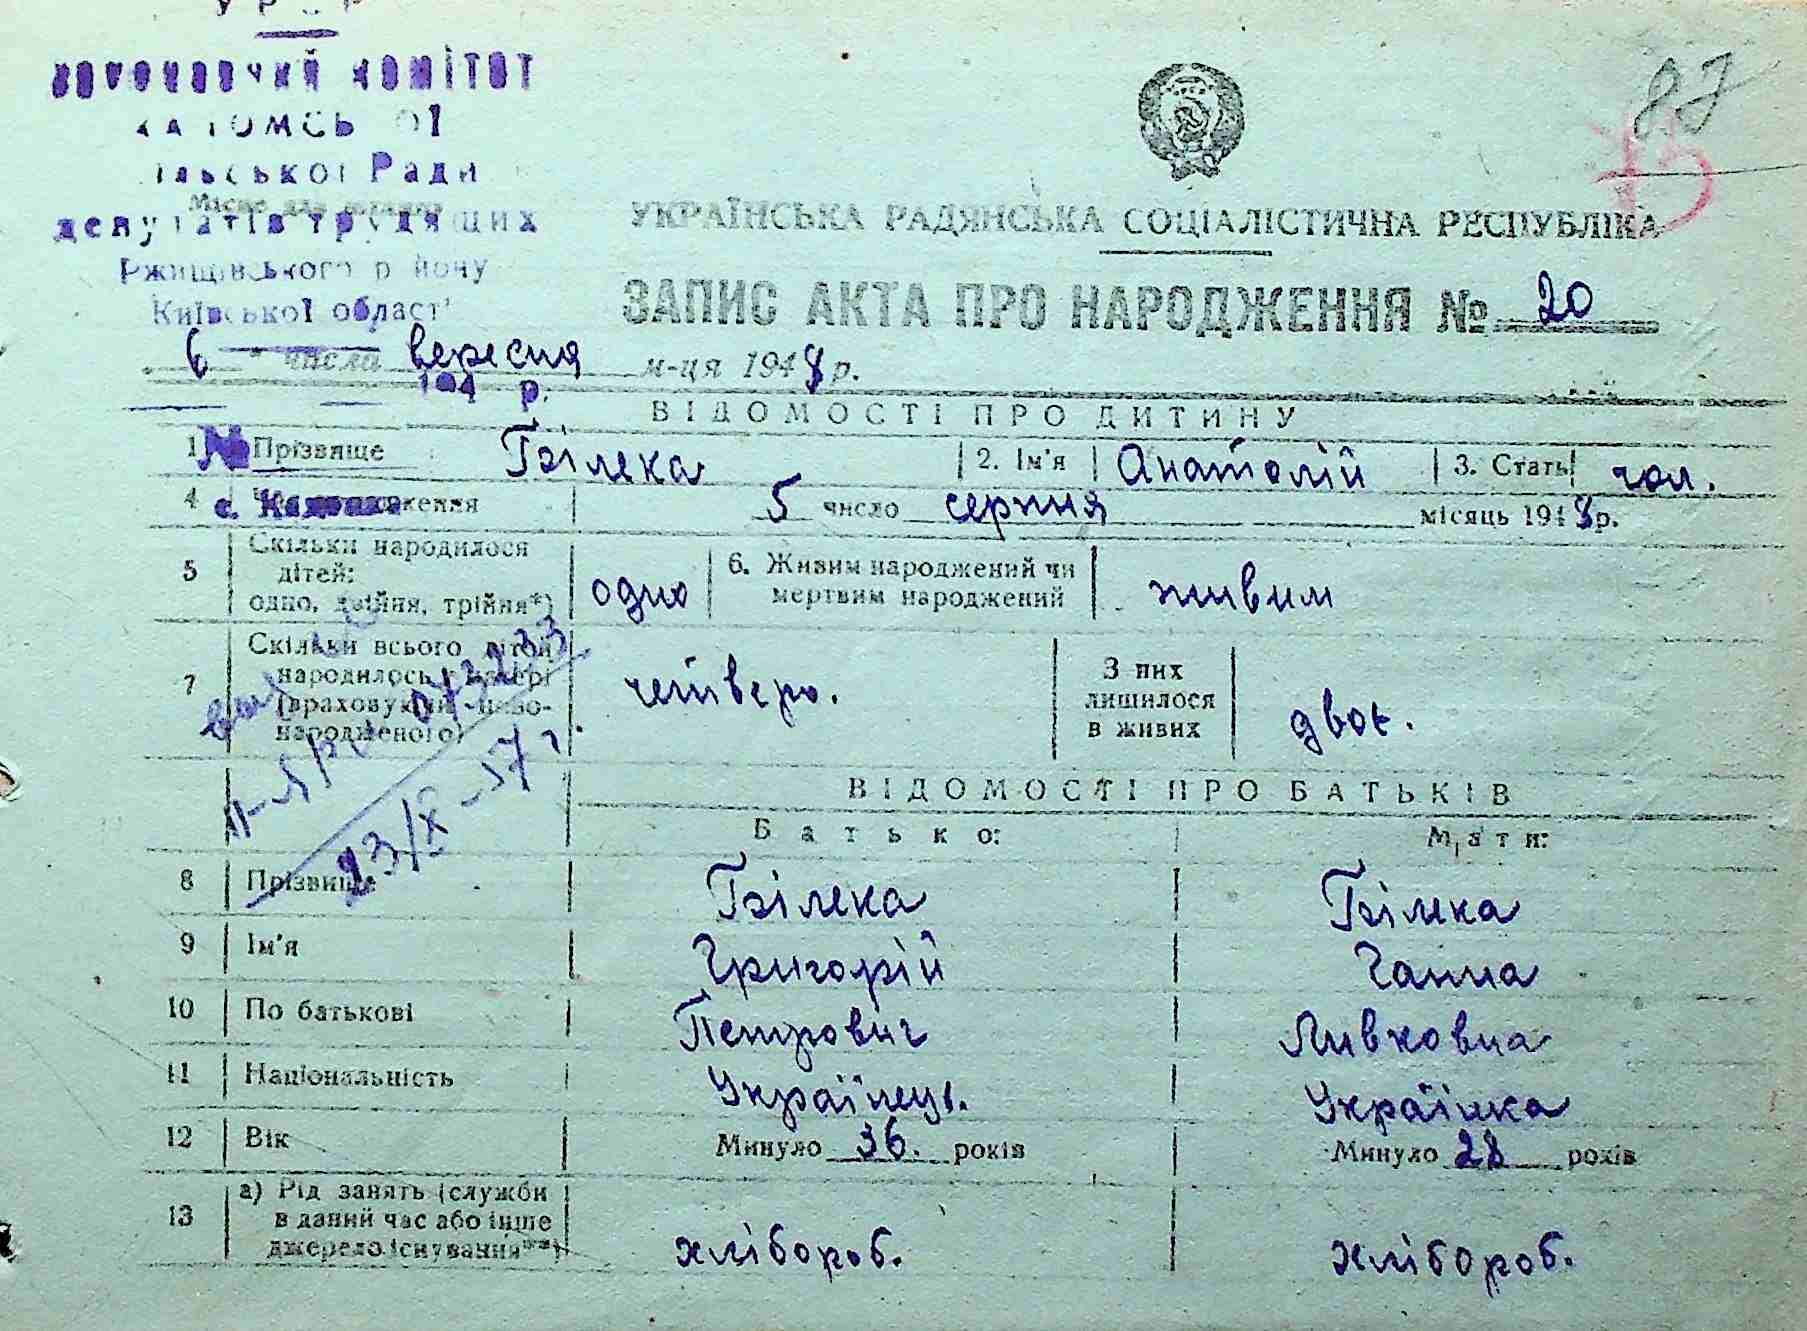 УРСР
виконавчий комітет
сільської Ради
Місце для штампа
депутатів трудящих
Ржищівського району
Київської області
194 р.
№
с.
87
УКРАЇНСЬКА РАДЯНСЬКА СОЦІАЛІСТИЧНА РЕСПУБЛІКА
ЗАПИС АКТА ПРО НАРОДЖЕННЯ № 20
6 " числа вересня м-ця 1948 р.
ВІДОМОСТІ ПРО ДИТИНУ
1 Прізвище Білека 2. Ім'я Анатолій 3. Стать чол.
4 5 число серпня місяць 1948 р.
5 Скільки народилося дітей: одно, двійня, трійня*) одно 6. Живим народжений чи мертвим народжений живим
7 Скільки всього дітей народилось у матері (враховуючи ново-народженого) четверо. З них лишилося в живих двоє.
23/X-57 г.
ВІДОМОСТІ ПРО БАТЬКІВ
Батько: Мати:
8 Прізвище Білека Білека
9 Ім'я Григорій Ганна
10 По батькові Петрович Левковна
11 Національність Українець. Українка
12 Вік Минуло 36. років Минуло 28 років
13 а) Рід занять (служби в даний час або інше джерело існування**) хлібороб. хлібороб.